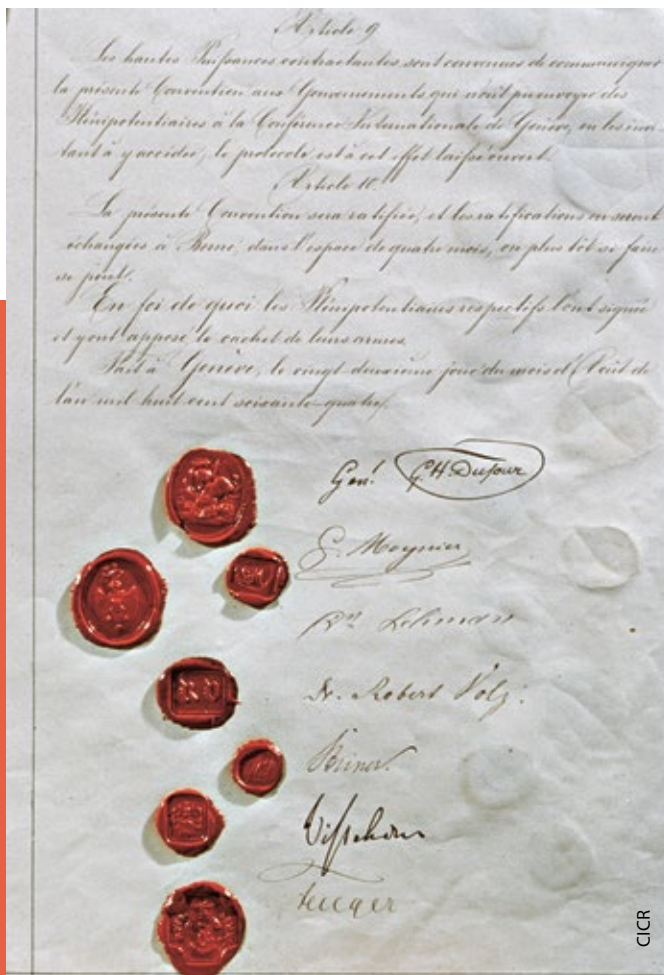 Article 9
Les hautes Puissances contractantes sont convenues de communiquer
la présente Convention aux Gouvernements qui n'ont pu envoyer des
Plénipotentiaires à la Conférence Internationale de Genève, en les invi-
tant à y accéder; le protocole est à cet effet laissé ouvert.
Article 10.
La présente Convention sera ratifiée, et les ratifications en seront
échangées à Berne, dans l'espace de quatre mois, ou plus tôt si faire
se peut.
En foi de quoi les Plénipotentiaires respectifs l'ont signée
et y ont apposé le cachet de leurs armes.
Fait à Genève, le vingt deuxième jour du mois d'Août de
l'an mil huit cent soixante-quatre.
Genl G. H. Dufour
G. Moynier
Lehmann
Dr. Robert Volz.
Steiner.
Visschers
CICR